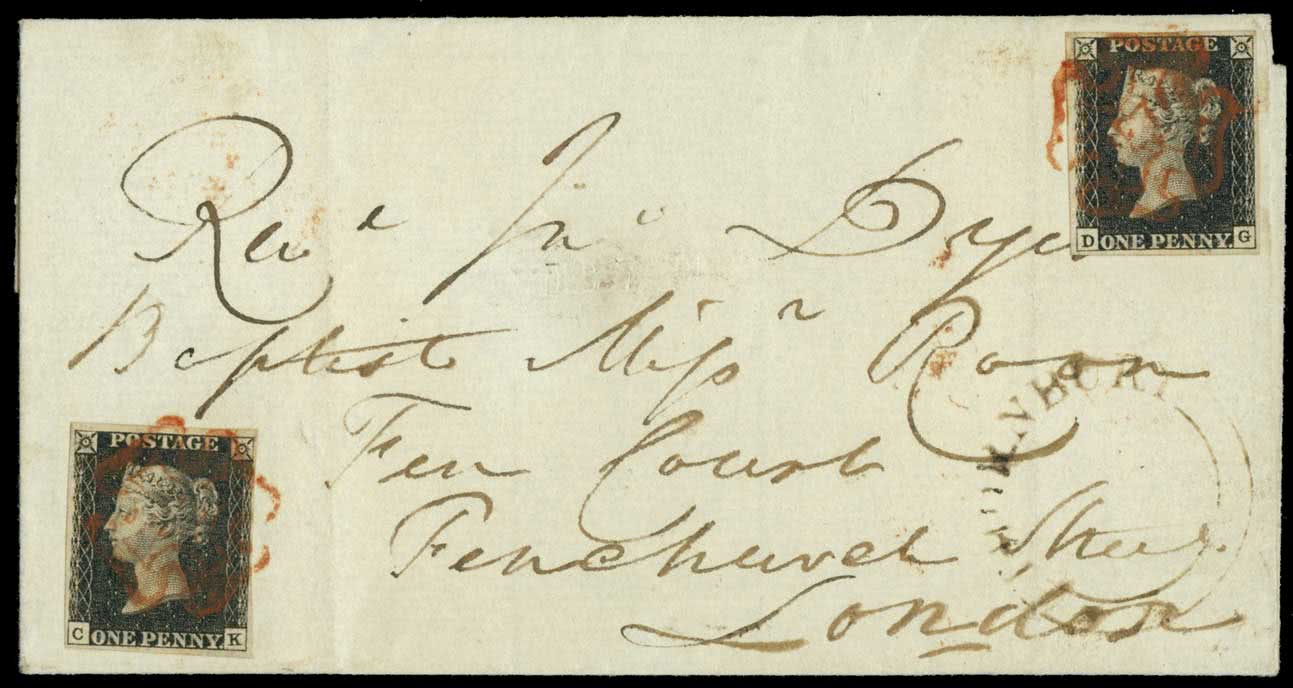 POSTAGE
D ONE PENNY G
Revd Jno Dyer
Baptist Missy Room
Fen Court
Fenchurch Street
London
POSTAGE
C ONE PENNY K